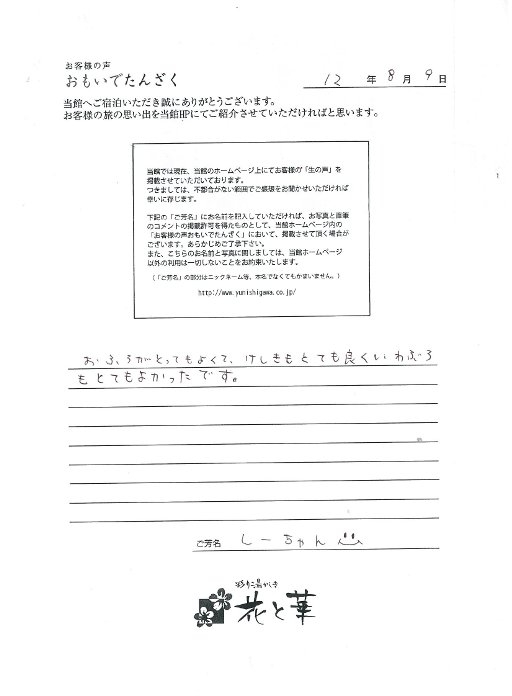 お客様の声
おもいでたんざく
12 年 8 月 9 日
当館へご宿泊いただき誠にありがとうございます。
お客様の旅の思い出を当館HPにてご紹介させていただければと思います。
当館では現在、当館のホームページ上にてお客様の「生の声」を
掲載させていただいております。
つきましては、不都合がない範囲でご感想をお聞かせいただければ
幸いに存じます。
下記の「ご芳名」にお名前を記入していただければ、お写真と直筆
のコメントの掲載許可を得たものとして、当館ホームページ内の
「お客様の声おもいでたんざく」において、掲載させて頂く場合が
ございます。あらかじめご了承下さい。
また、こちらのお名前と写真に関しましては、当館ホームページ
以外の利用は一切しないことをお約束いたします。
(「ご芳名」の部分はニックネーム等、本名でなくてもかまいません。)
http://www.yunishigawa.co.jp/
おふろがとってもよくて、けしきもとても良くいわぶろ
もとてもよかったです。
ご芳名 しーちゃん
花と華